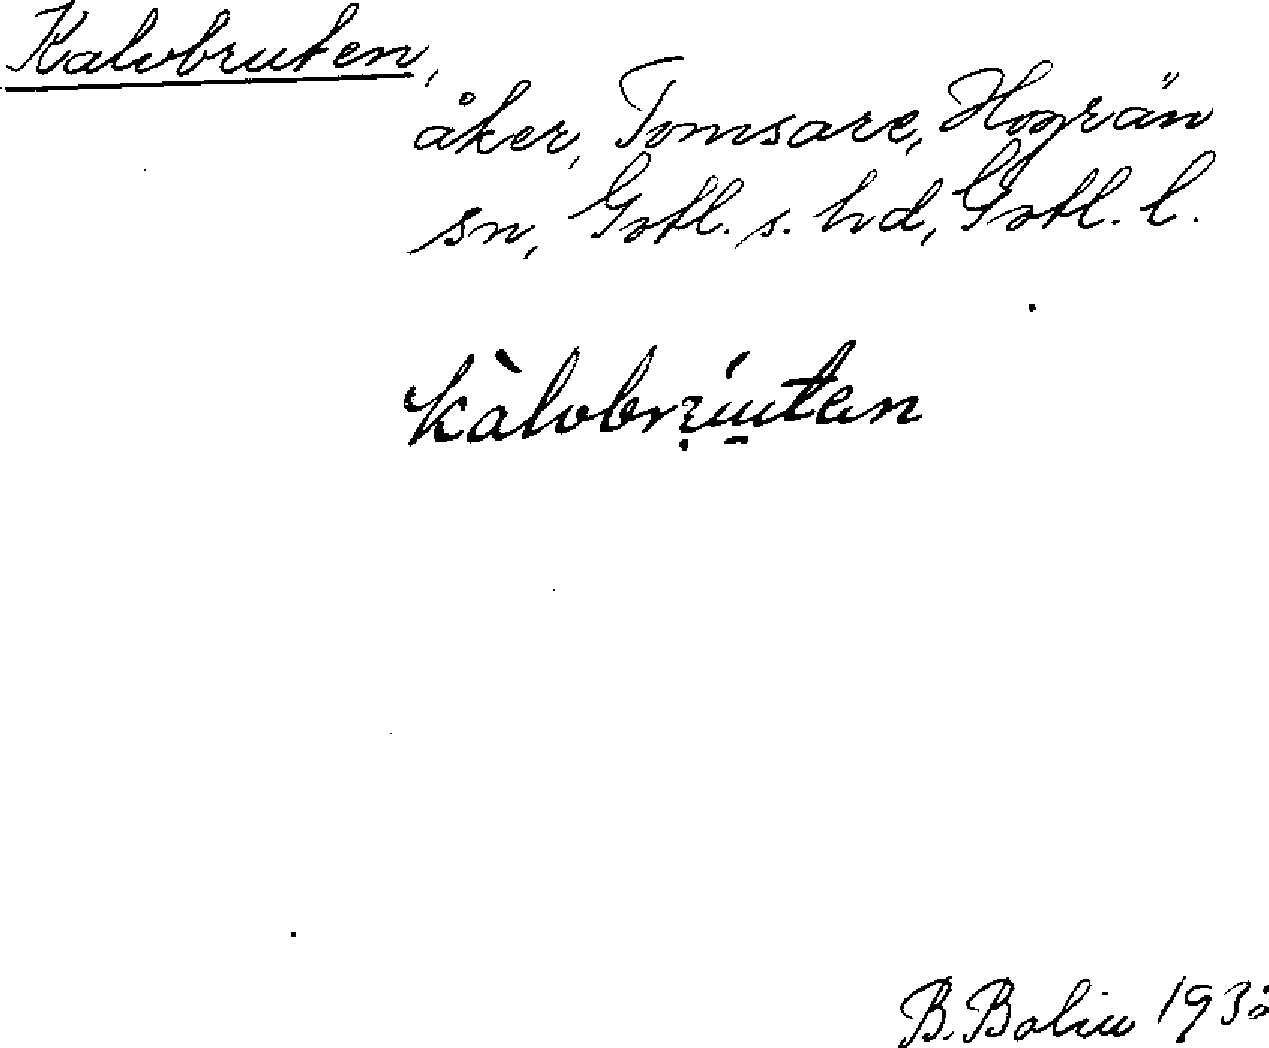 Kalvbruten,
åker, Tomsare, Hogrän
sn, Gotl. s. hd, Gotl. l.
kàlvbrúten
B. Bolin